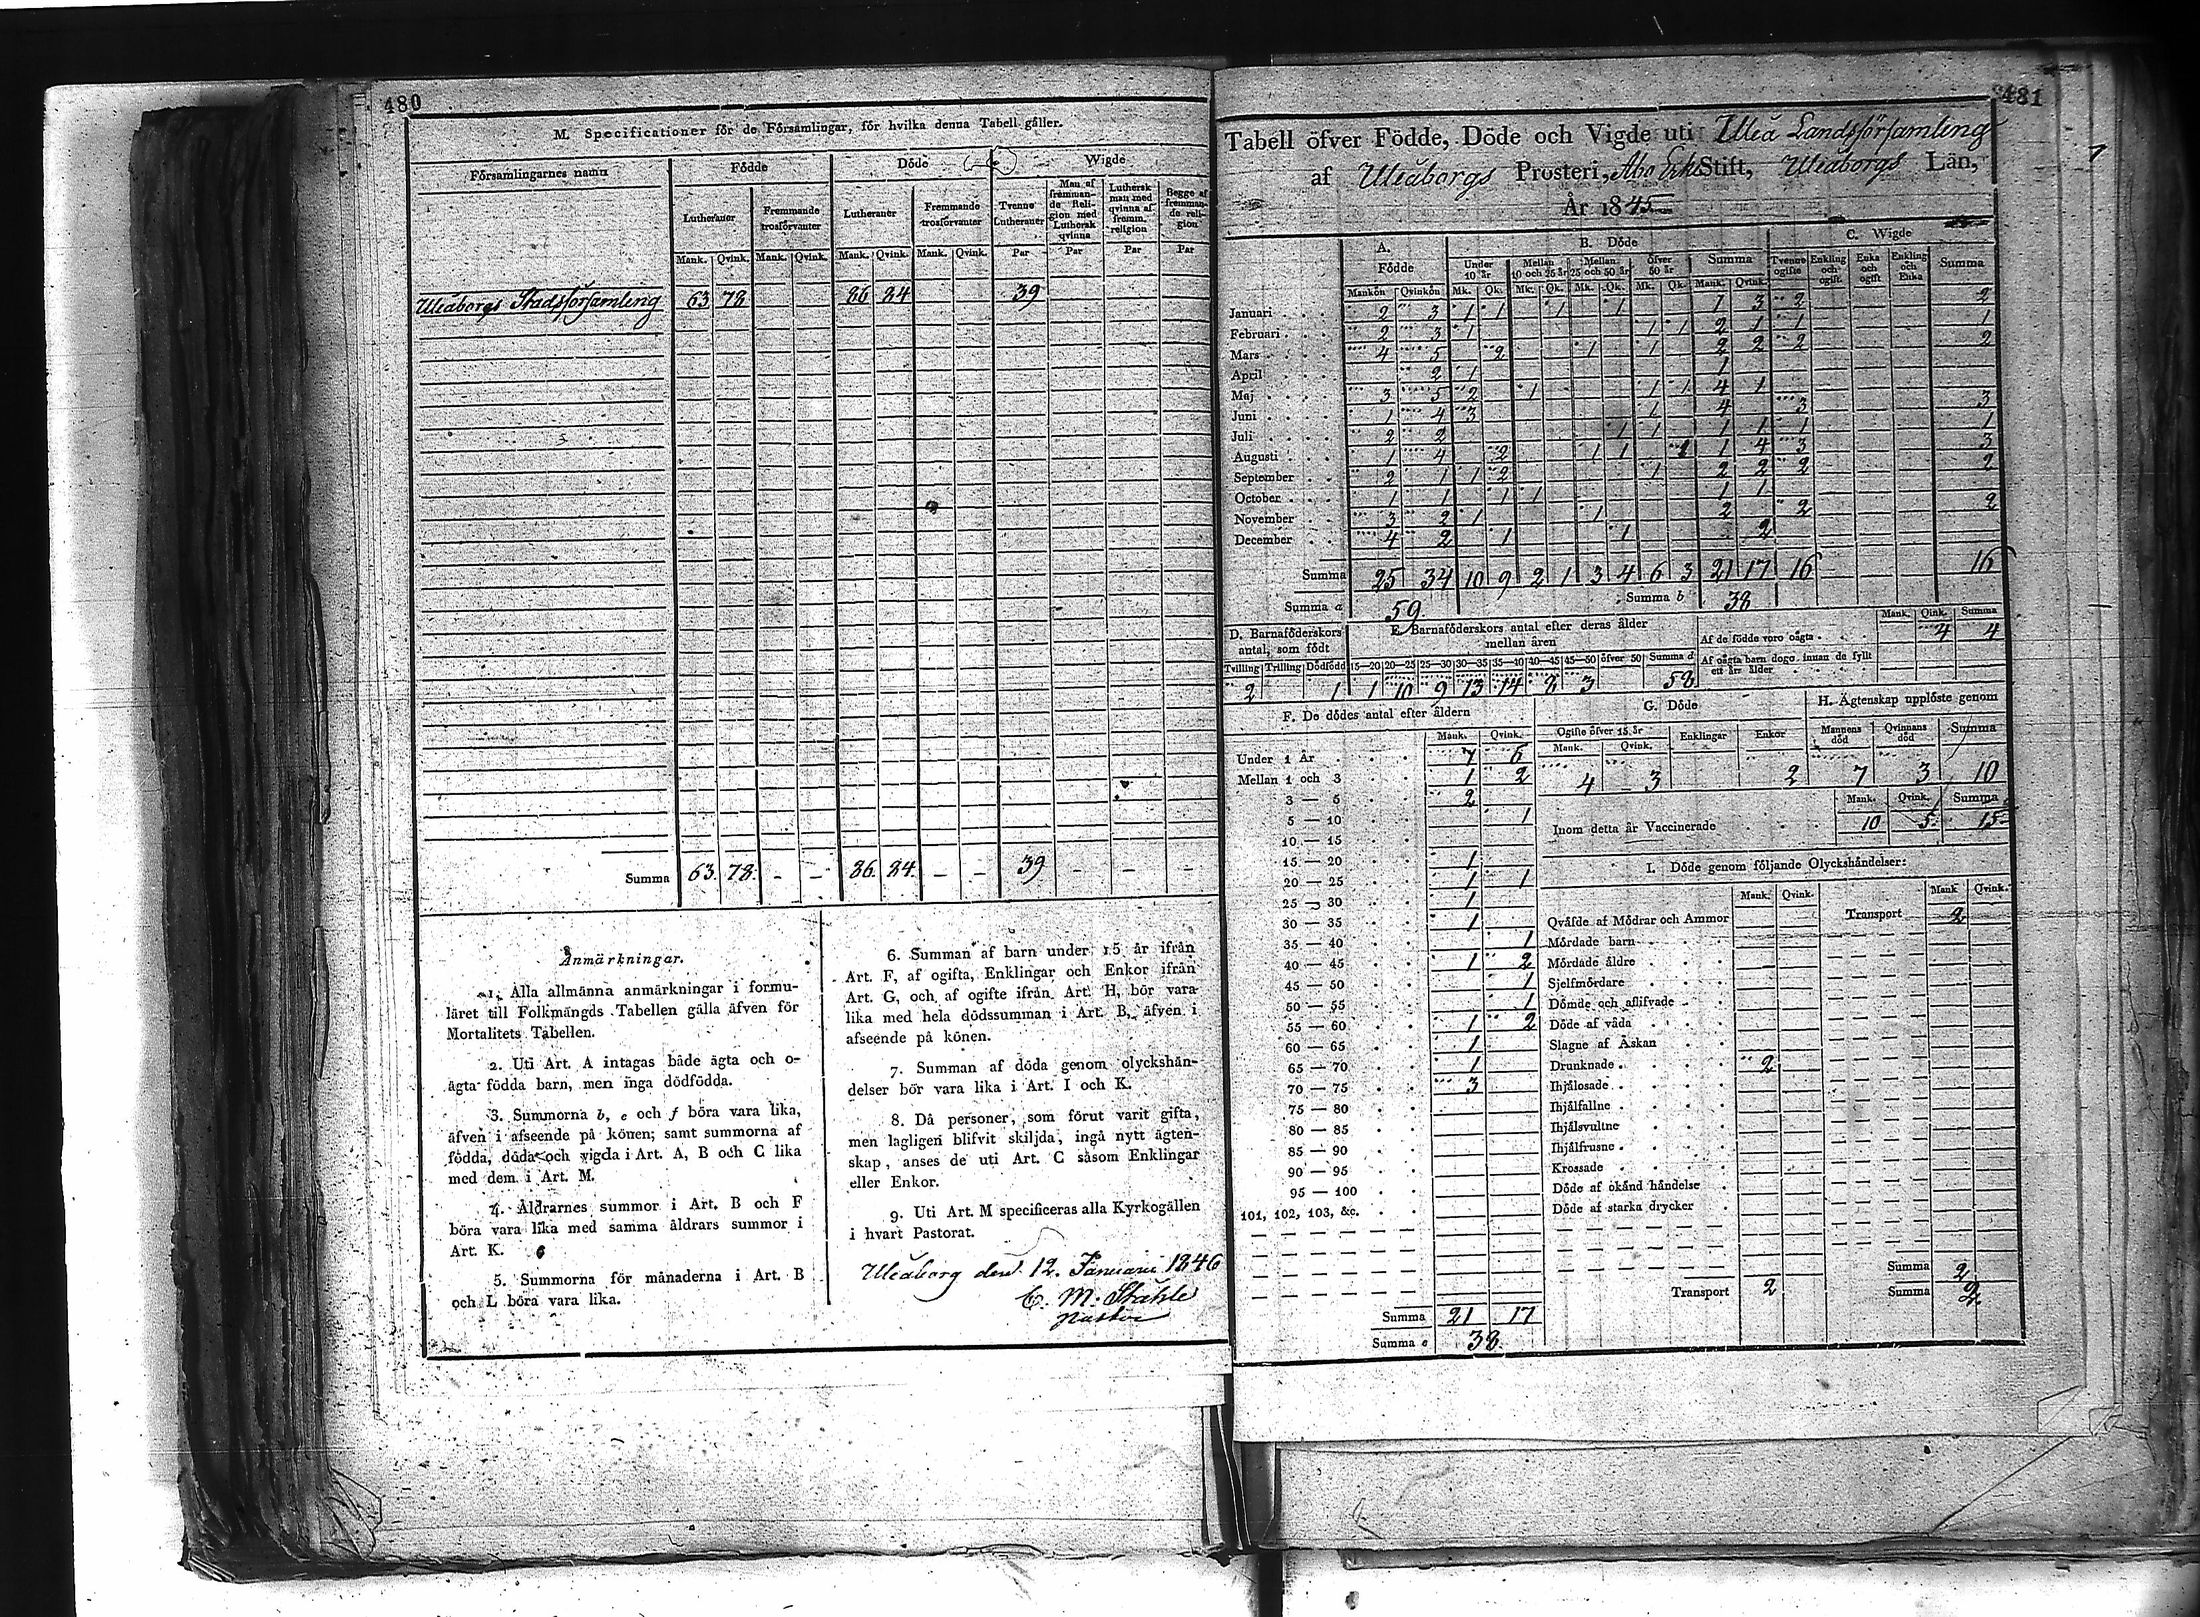 480
M. Specificationer för de Församlingar, för hvilka denna Tabell gäller.
Församlingarnes namn
Födde
Döde
Wigde
Lutheraner
Fremmande trosförvanter
Lutheraner
Fremmande trosförvanter
Tvenne Lutheraner
Man af fremmande Religion med Luthersk qvinna
Luthersk man med qvinna af fremm. religion
Begge af fremmande religion
Mank. Qvink. Mank. Qvink. Mank. Qvink. Mank. Qvink. Par Par Par Par
Uleåborgs Stadsförsamling 63 78 86 84 39
Summa 63 78 - - 86 84 - - 39 - - -
Anmärkningar.
1. Alla allmänna anmärkningar i formu-
läret till Folkmängds Tabellen gälla äfven för
Mortalitets Tabellen.
2. Uti Art. A intagas både ägta och o-
ägta födda barn, men inga dödfödda.
3. Summorna b, e och f böra vara lika,
äfven i afseende på könen; samt summorna af
födda, döda och vigda i Art. A, B och C lika
med dem i Art. M.
4. Åldrarnes summor i Art. B och F
böra vara lika med samma åldrars summor i
Art. K.
5. Summorna för månaderna i Art. B
och L böra vara lika.
6. Summan af barn under 15 år ifrån
Art. F, af ogifta, Enklingar och Enkor ifrån
Art. G, och af ogifte ifrån Art. H, bör vara
lika med hela dödssumman i Art. B, äfven i
afseende på könen.
7. Summan af döda genom olyckshän-
delser bör vara lika i Art. I och K.
8. Då personer, som förut varit gifta,
men lagligen blifvit skiljda, ingå nytt ägten-
skap, anses de uti Art. C såsom Enklingar
eller Enkor.
9. Uti Art. M specificeras alla Kyrkogällen
i hvart Pastorat.
Uleåborg den 12. Januarii 1846
C. M. Ståhle
Pastor
481
Tabell öfver Födde, Döde och Vigde uti Uleå Landsförsamling
af Uleåborgs Prosteri, Åbo Erke Stift, Uleåborgs Län,
År 1845
A. Födde
B. Döde
C. Wigde
Under 10 år
Mellan 10 och 25 år
Mellan 25 och 50 år
Öfver 50 år
Summa
Tvenne ogifte
Enkling och ogift
Enka och ogift
Enkling och Enka
Summa
Mankön Qvinkön Mk. Qk. Mk. Qk. Mk. Qk. Mk. Qk. Mank. Qvink.
Januari 2 3 1 1 1 1 1 3 2 2
Februari 2 3 1 1 1 2 1 1 1
Mars 4 5 2 1 1 2 2 2 2
April 2 1 1
Maj 3 5 2 1 1 1 4 1
Juni 1 4 3 1 4 3 3
Juli 2 2 1 1 1 1 1 1
Augusti 1 4 2 1 1 1 1 4 3 3
September 2 1 1 2 1 2 2 2 2
October 1 1 1 1 1 1
November 3 2 1 1 2 2 2
December 4 2 1 1 2
Summa 25 34 10 9 2 1 3 4 6 3 21 17 16 16
Summa a 59 Summa b 38
D. Barnaföderskors antal, som födt
E. Barnaföderskors antal efter deras ålder mellan åren
Tvilling Trilling Dödfödd 15—20 20—25 25—30 30—35 35—40 40—45 45—50 öfver 50 Summa d
2 1 1 10 9 13 14 8 3 58
Mank. Qink. Summa
Af de födde voro oägta 4 4
Af oägta barn dogo innan de fyllt ett års ålder
F. De dödes antal efter åldern
Mank. Qvink.
Under 1 År 7 6
Mellan 1 och 3 1 2
3 — 5 2
5 — 10 1
10 — 15
15 — 20 1
20 — 25 1 1
25 — 30 1
30 — 35 1
35 — 40 1
40 — 45 1 2
45 — 50 1
50 — 55 1
55 — 60 1 2
60 — 65 1
65 — 70 1
70 — 75 3
75 — 80
80 — 85
85 — 90
90 — 95
95 — 100
101, 102, 103, &c.
Summa 21 17
Summa e 38
G. Döde
Ogifte öfver 15 år
Enklingar
Enkor
Mank. Qvink.
4 3 2
H. Ägtenskap upplöste genom
Mannens död
Qvinnans död
Summa
7 3 10
Mank. Qvink. Summa
Inom detta år Vaccinerade 10 5 15
I. Döde genom följande Olyckshändelser:
Mank. Qvink. Mank Qvink.
Qväfde af Mödrar och Ammor
Transport 2
Mördade barn
Mördade äldre
Sjelfmördare
Dömde och aflifvade
Döde af våda
Slagne af Åskan
Drunknade 2
Ihjälosade
Ihjälfallne
Ihjälsvultne
Ihjälfrusne
Krossade
Döde af okänd händelse
Döde af starka drycker
Summa 2
Transport 2 Summa 2